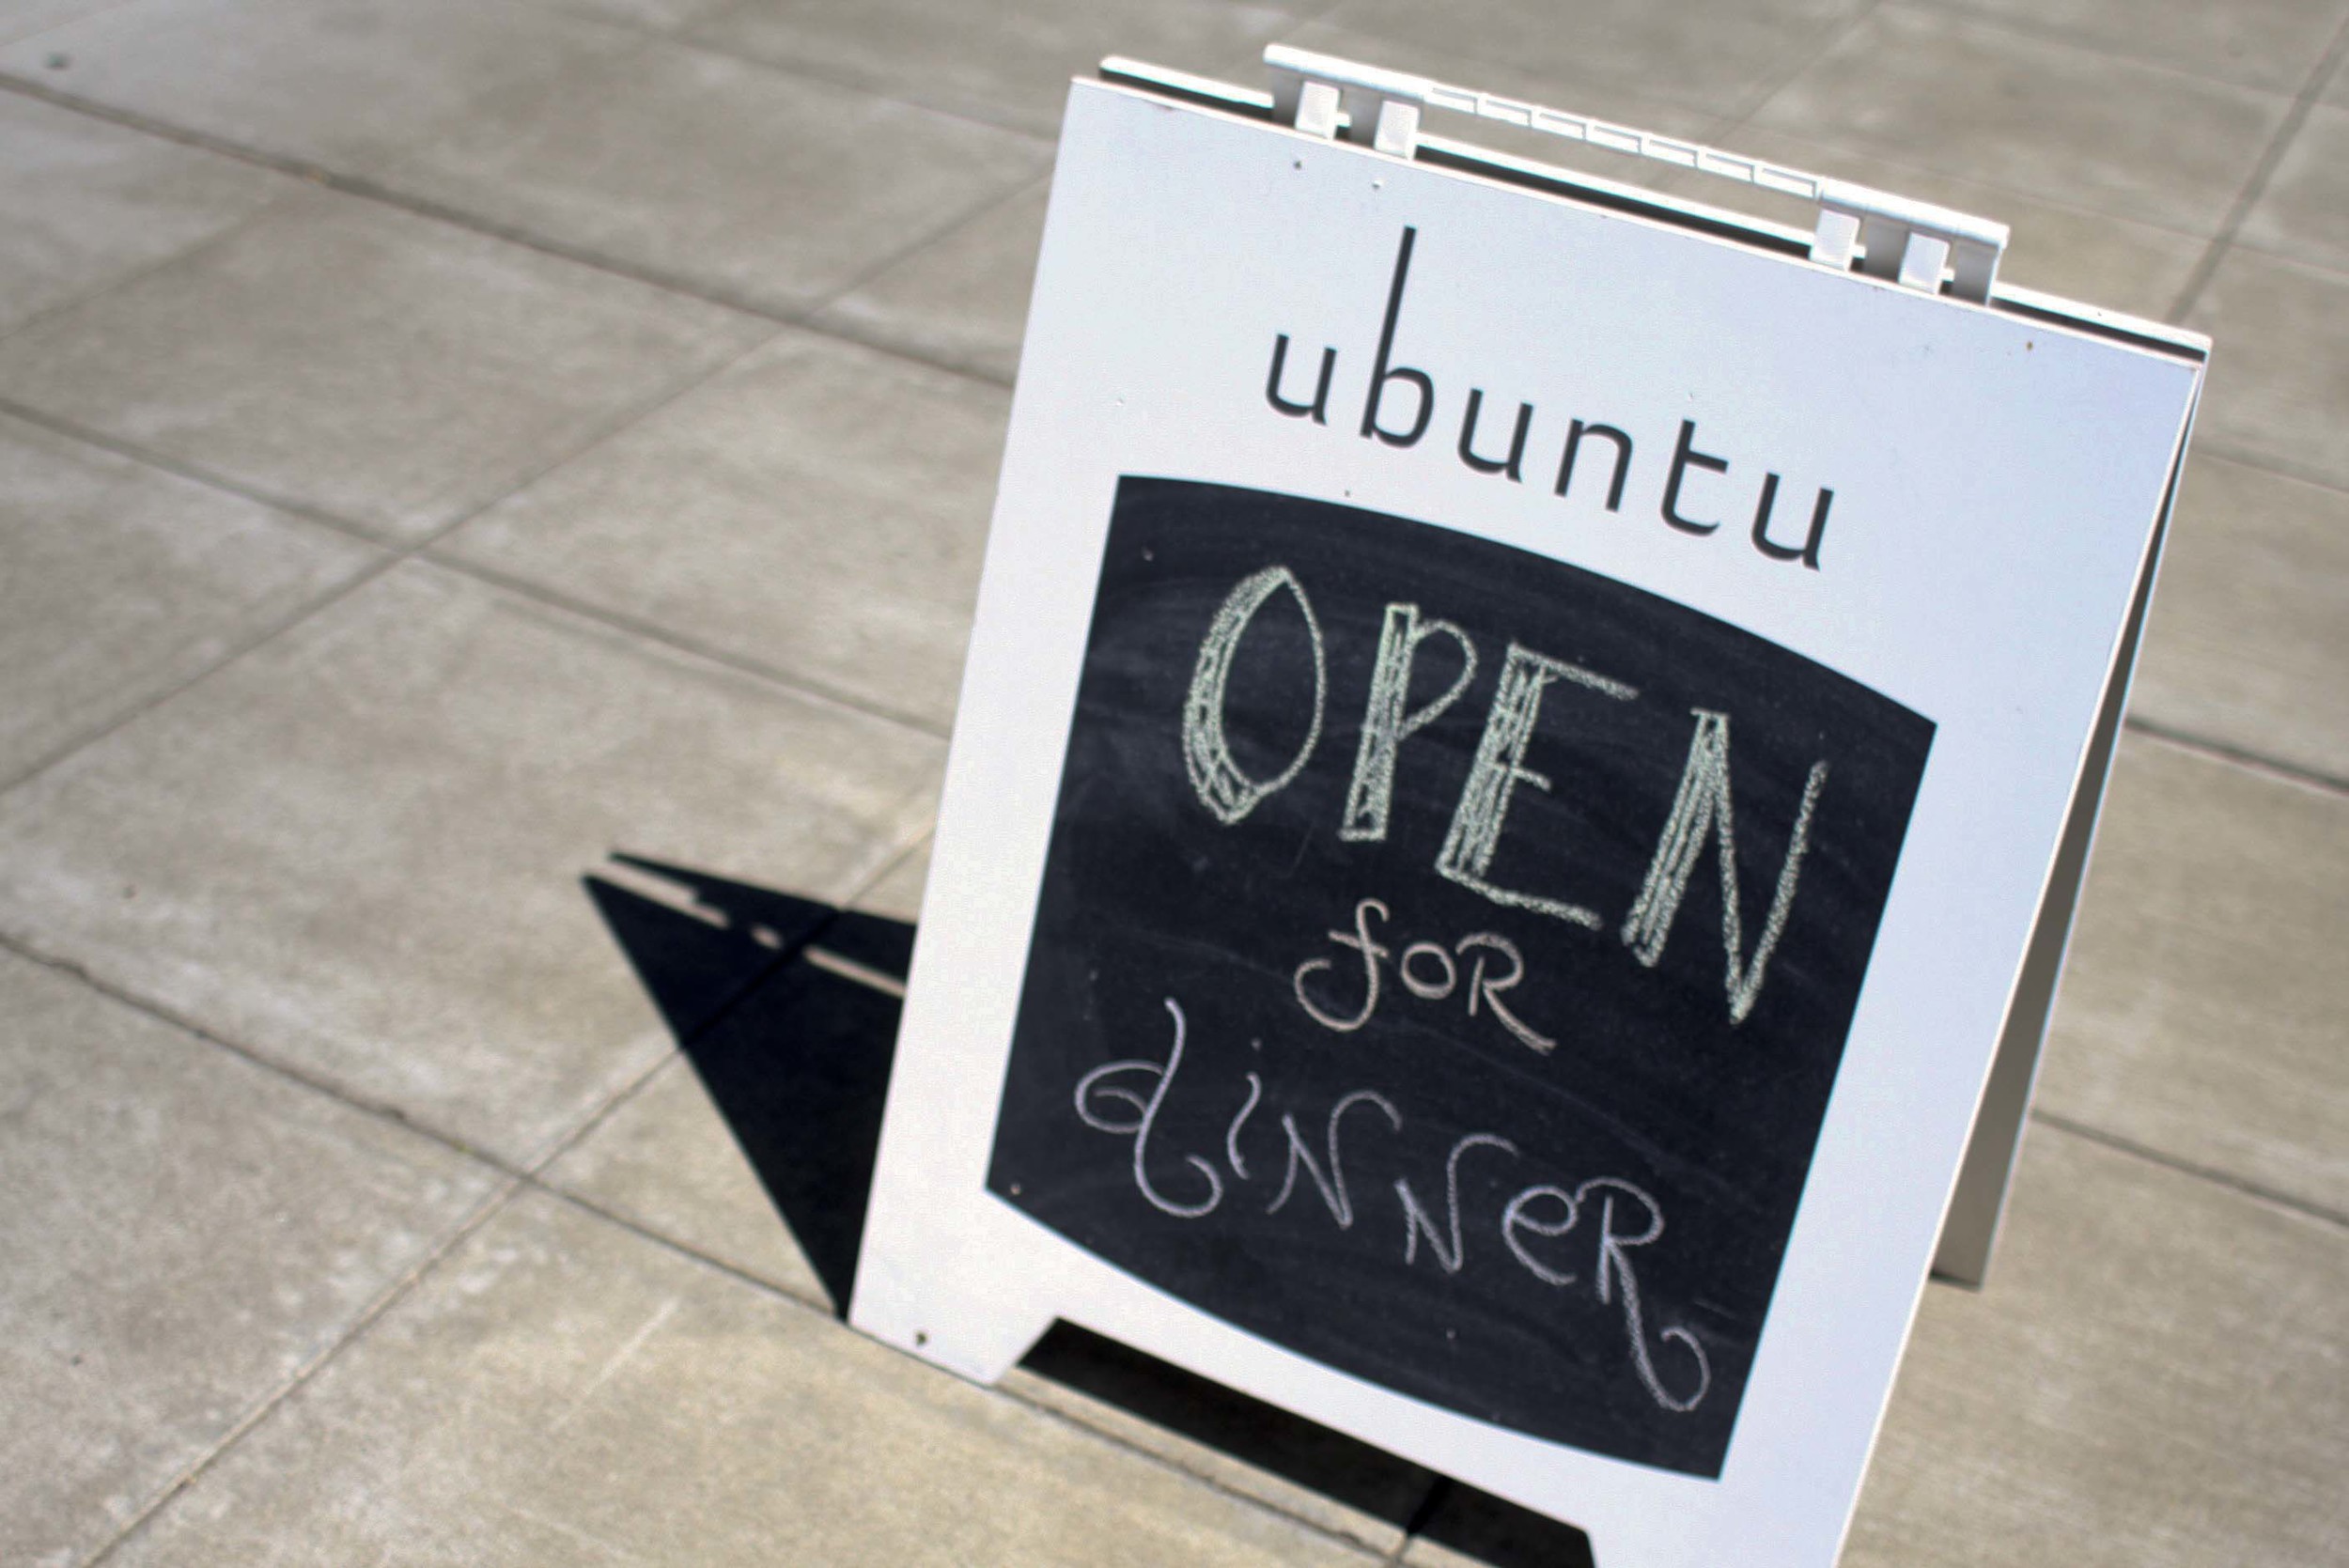 ubuntu
OPEN
foR
diNNeR